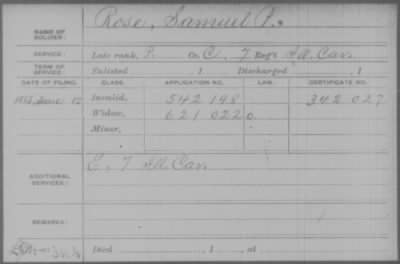 Rose, Samuel P.
NAME OF SOLDIER:
SERVICE: Late rank, P. Co. C, 7 Reg't Ill. Cav.
TERM OF SERVICE: Enlisted , 1 Discharged , 1
DATE OF FILING. CLASS. APPLICATION NO. LAW. CERTIFICATE NO.
1885, June 12 Invalid, 542 198 342 027
Widow, 621 022
Minor,
E, 7 Ill. Cav.
ADDITIONAL SERVICES:
REMARKS:
Died , 1 , at